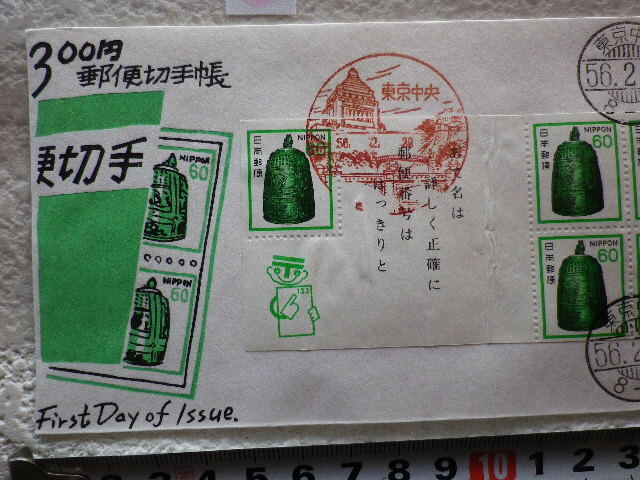 300円
郵便切手帳
便切手
NIPPON
60
NIPPON
60
First Day of Issue.
日本郵便
NIPPON
60
東京中央
56. 2.
お宛名は
詳しく正確に
郵便番号は
はっきりと
123
日本郵便
NIPPON
60
日本郵便
NIPPON
60
東京中
56.2
8-
東京
56.2
8-
2 3 4 5 6 7 8 9 10 1 2 3